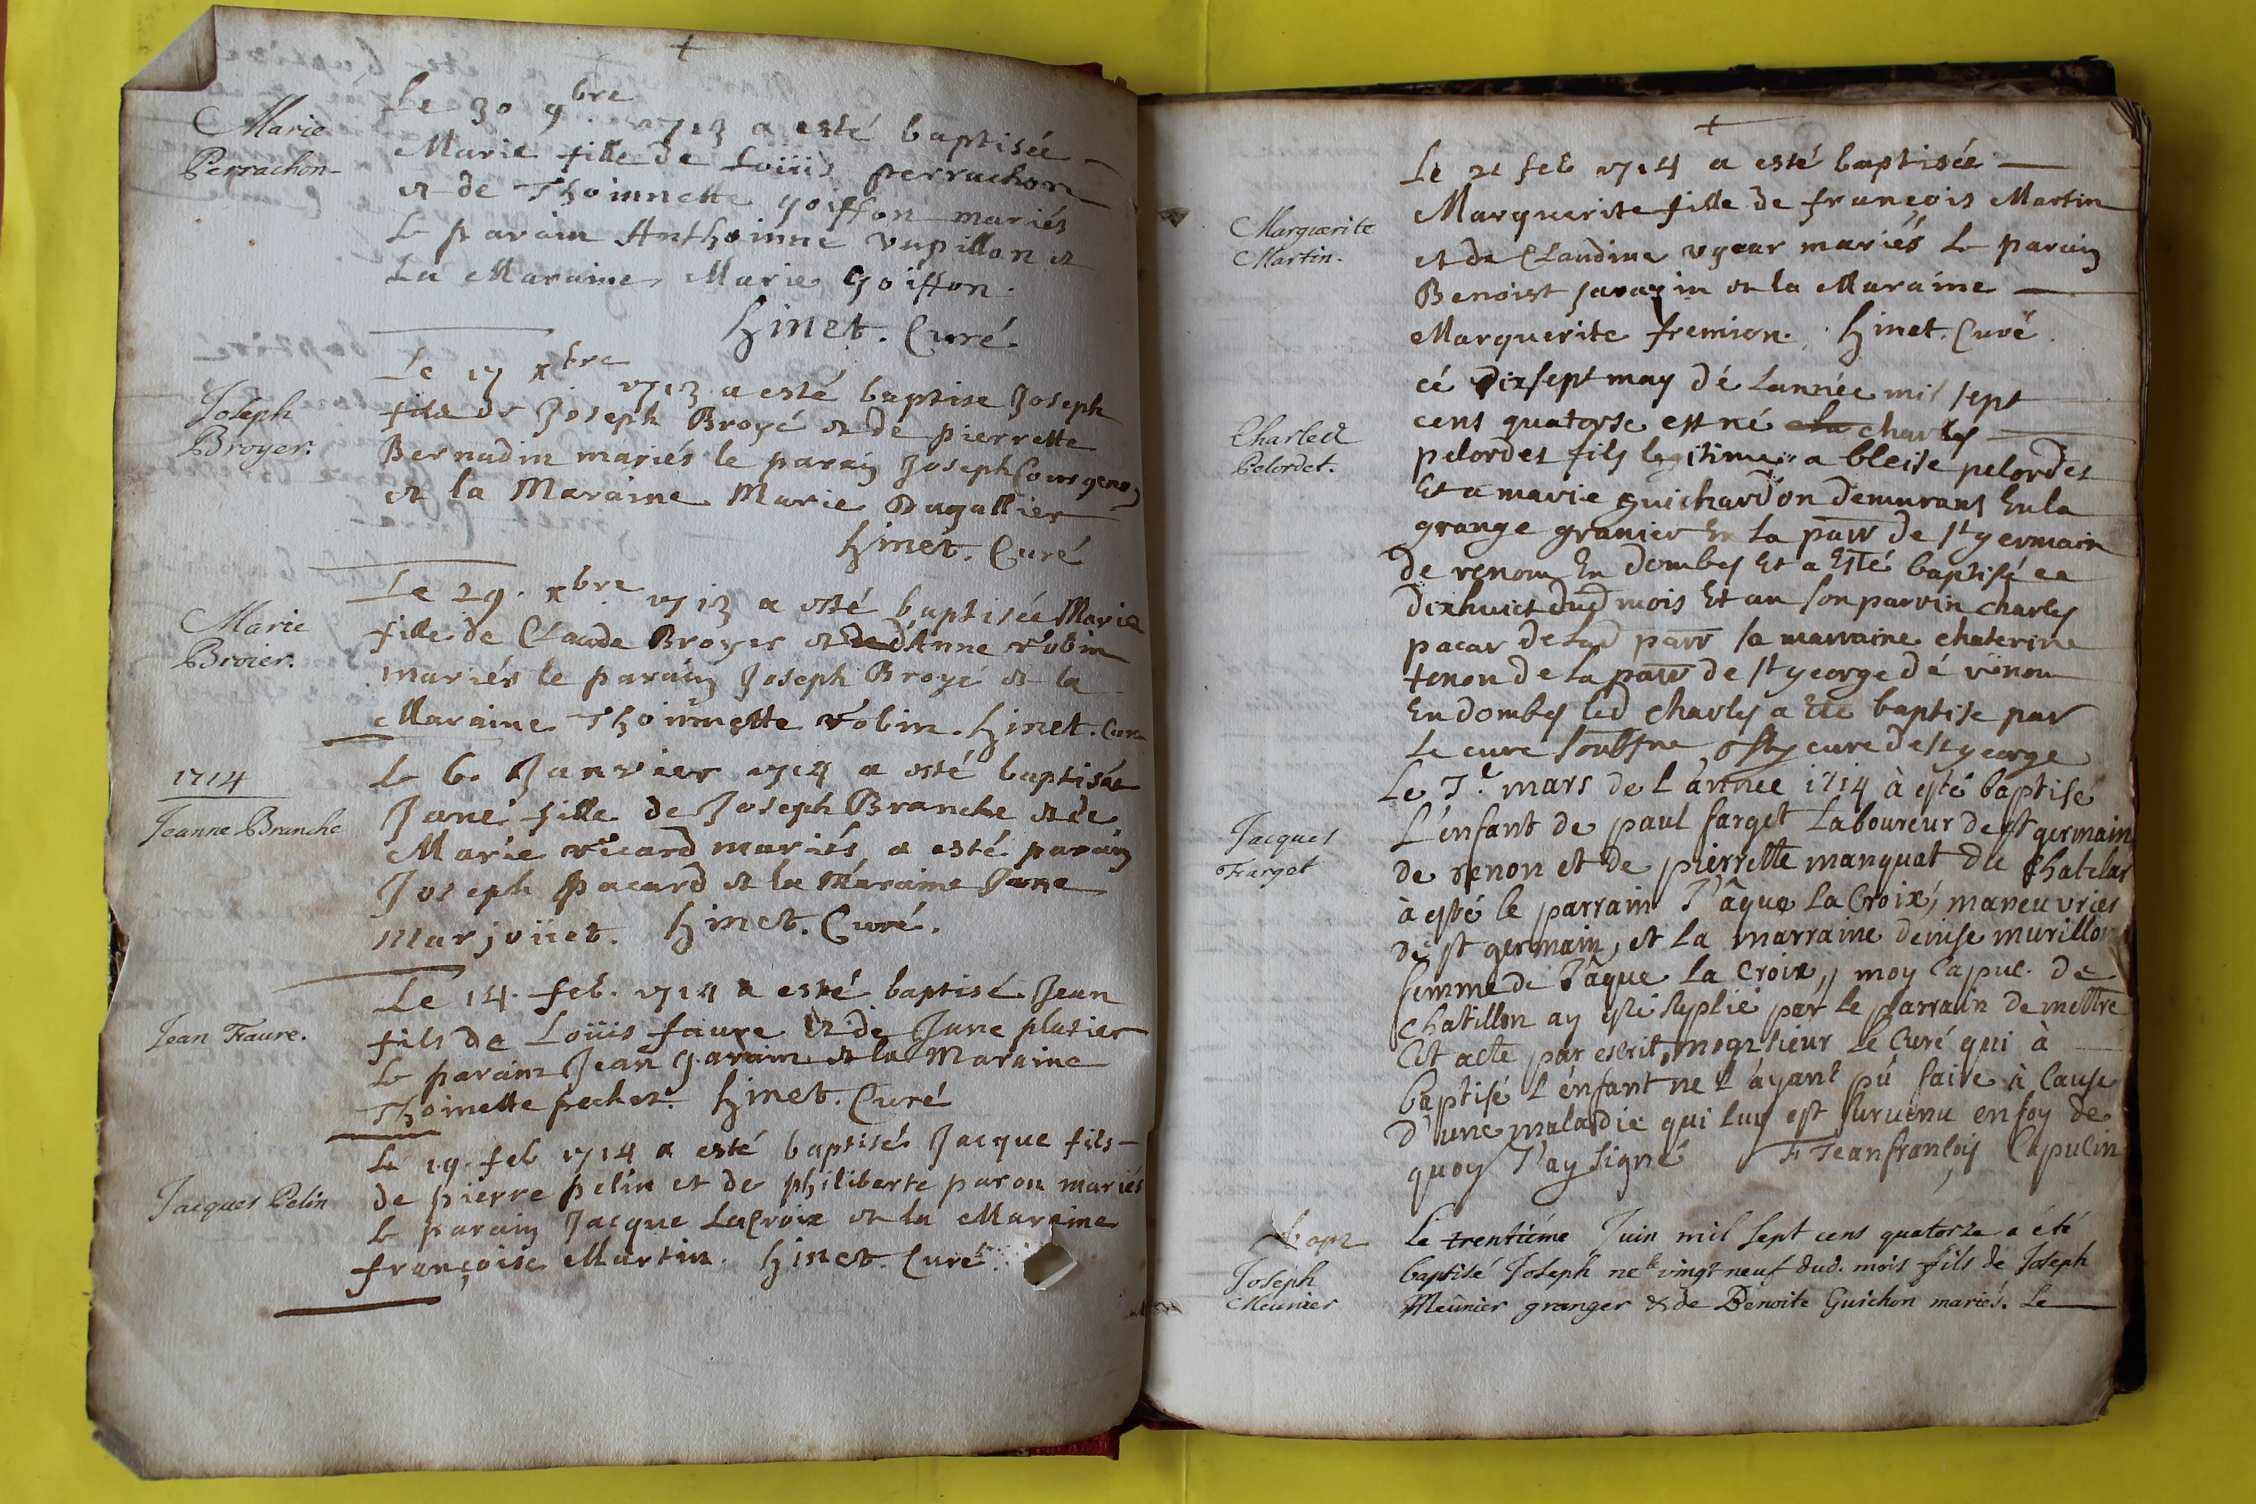 Marie
Perrachon
Le 30 9bre 1713 a esté baptisée
Marie fille de Loüis perrachon
et de Thoinnette goiffon mariés
Le parain Anthoinne vupillon et
La Maraine Marie Goiffon.
hinet. Curé.
Joseph
Broyer.
Le 17 xbre 1713 a esté baptise Joseph
fils de Joseph Broyé et de pierrette
Bernadin mariés le parain Joseph
et la Maraine Marie Dugallier
hinet. Curé
Marie
Broier.
Le 29. xbre 1713 a esté baptisée Marie
fille de Claude Broyer et d'Anne robin
mariés le parain Joseph Broyé et la
Maraine Thoinnette robin. hinet. Cure
1714
Jeanne Branche
Le 6. Janvier 1714 a esté baptisée
Jane fille de Joseph Branche et de
Marie ricard mariés a esté parain
Joseph pacard et la Maraine Jane
Marjoüet. hinet. Curé.
Jean Faure.
Le 14. feb. 1714 a esté baptisé Jean
fils de Loüis faure et de Jane plusier
Le parain Jean garain et la Maraine
Thoinette pechet. hinet. Curé
Jacques Pelin
Le 19. feb 1714 a esté baptisé Jacque fils
de pierre pelin et de philiberte parou mariés
Le parain Jacque LaCroix et la Maraine
françoise Martin. hinet. Curé.
Marguerite
Martin.
Le 21 feb 1714 a esté baptisée
Marguerite fille de françois Martin
et de Claudine mariés Le parain
Benoist sarazin et la Maraine
Marguerite fremion. hinet. Curé.
Charles
Pelordet.
cé dixsept may dé Lannée mil sept
cens quatorse est né charles
pelordet fils legitime a bleise pelordet
Et a marie guichardon demurans En la
grange granier En la parr de st germain
de renom En dombes Et a Esté baptisé ce
dixhuict dud mois Et a son parrin charles
pacar de lad parr sa marraine chaterine
tenon de la parr de st george dé rénom
En dombes led charles a Eté baptise par
Le cure soubsne cure de st george
Jacques
Farget
Le 7e mars de l'année 1714 à esté baptisé
L'enfant de paul farget Laboureur de st germain
de renon et de pierrette manquat du Chatelar
à esté le parrain J'âque La Croix, maneuvrier
de st germain, et La marraine denise murillon
femme de J'âque La Croix,, moy Capuc. de
Chatillon ay esté suplié par Le parrain de mettre
Cet acte par escrit, monsieur Le Curé qui à
baptisé L'énfant ne L'ayant pû faire à Cause
d'une maladie qui luy est survenu en foy de
quoy J'ay signé F Jean françois Capucin
bapt
Joseph
Meunier
Le trentiéme Juin mil sept cens quatorze a été
baptisé Joseph né le vingt neuf dud. mois fils de Joseph
Meûnier granger & de Benoite Guichon mariés. Le